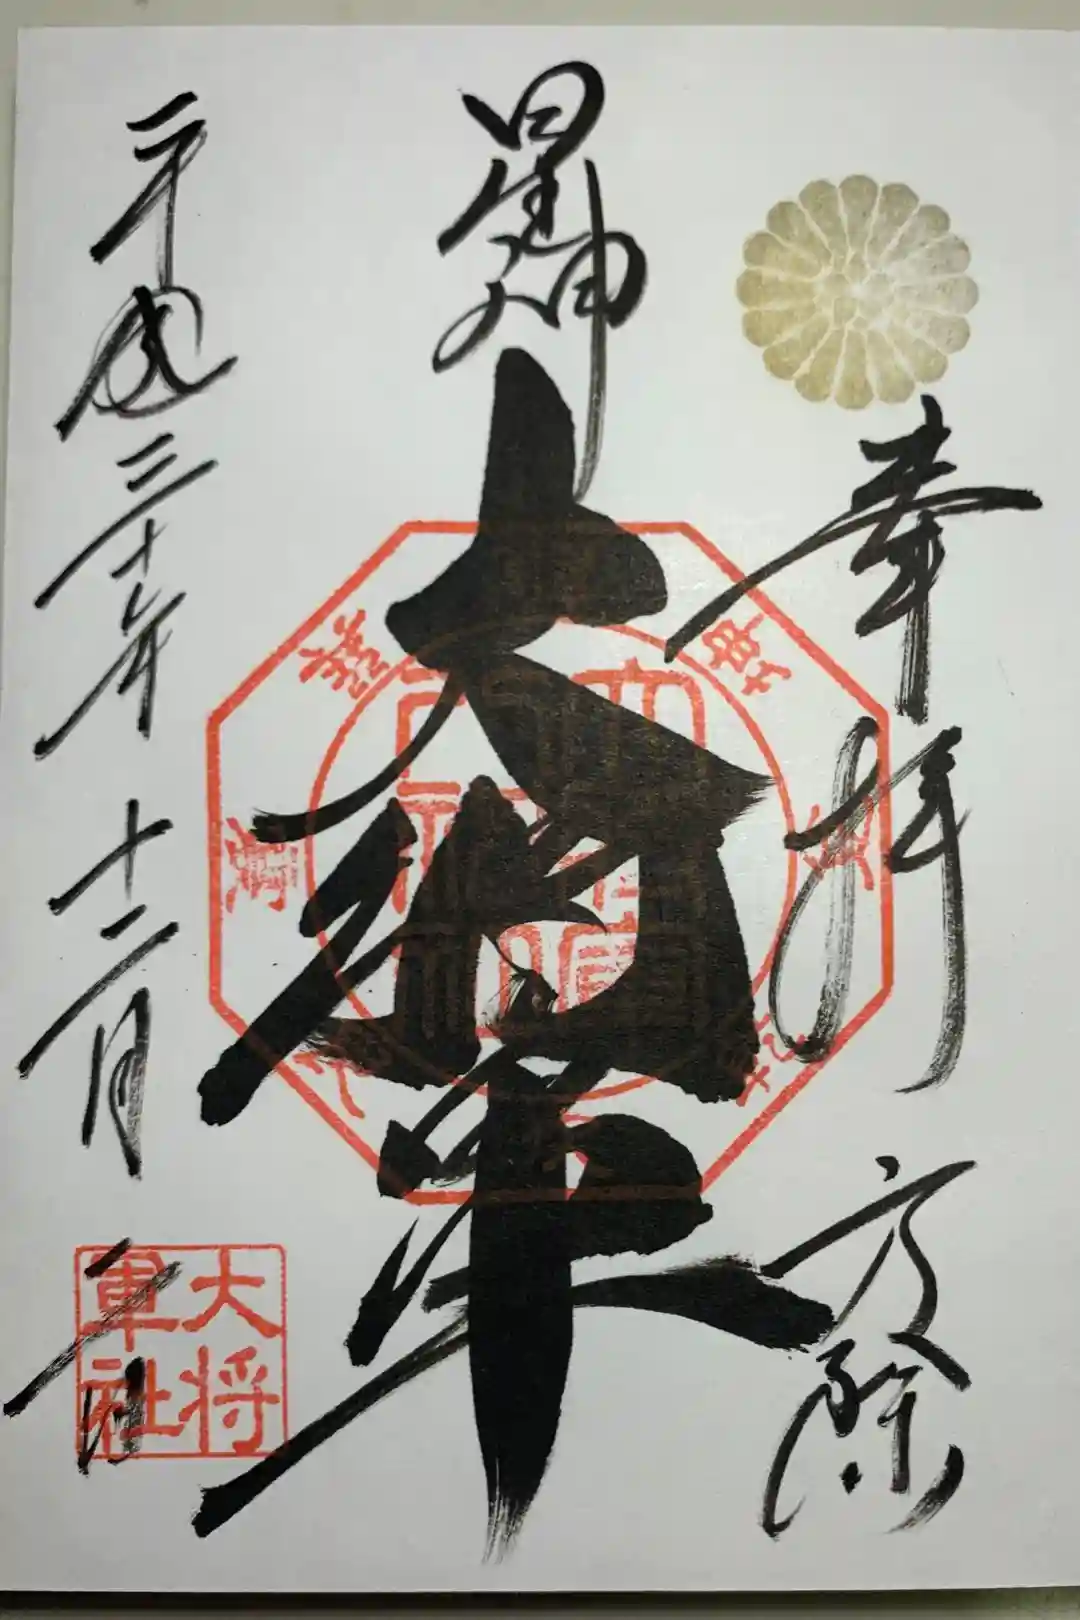 奉拝
方除
星神
大将軍
平成三十年十二月二日
大将
軍社